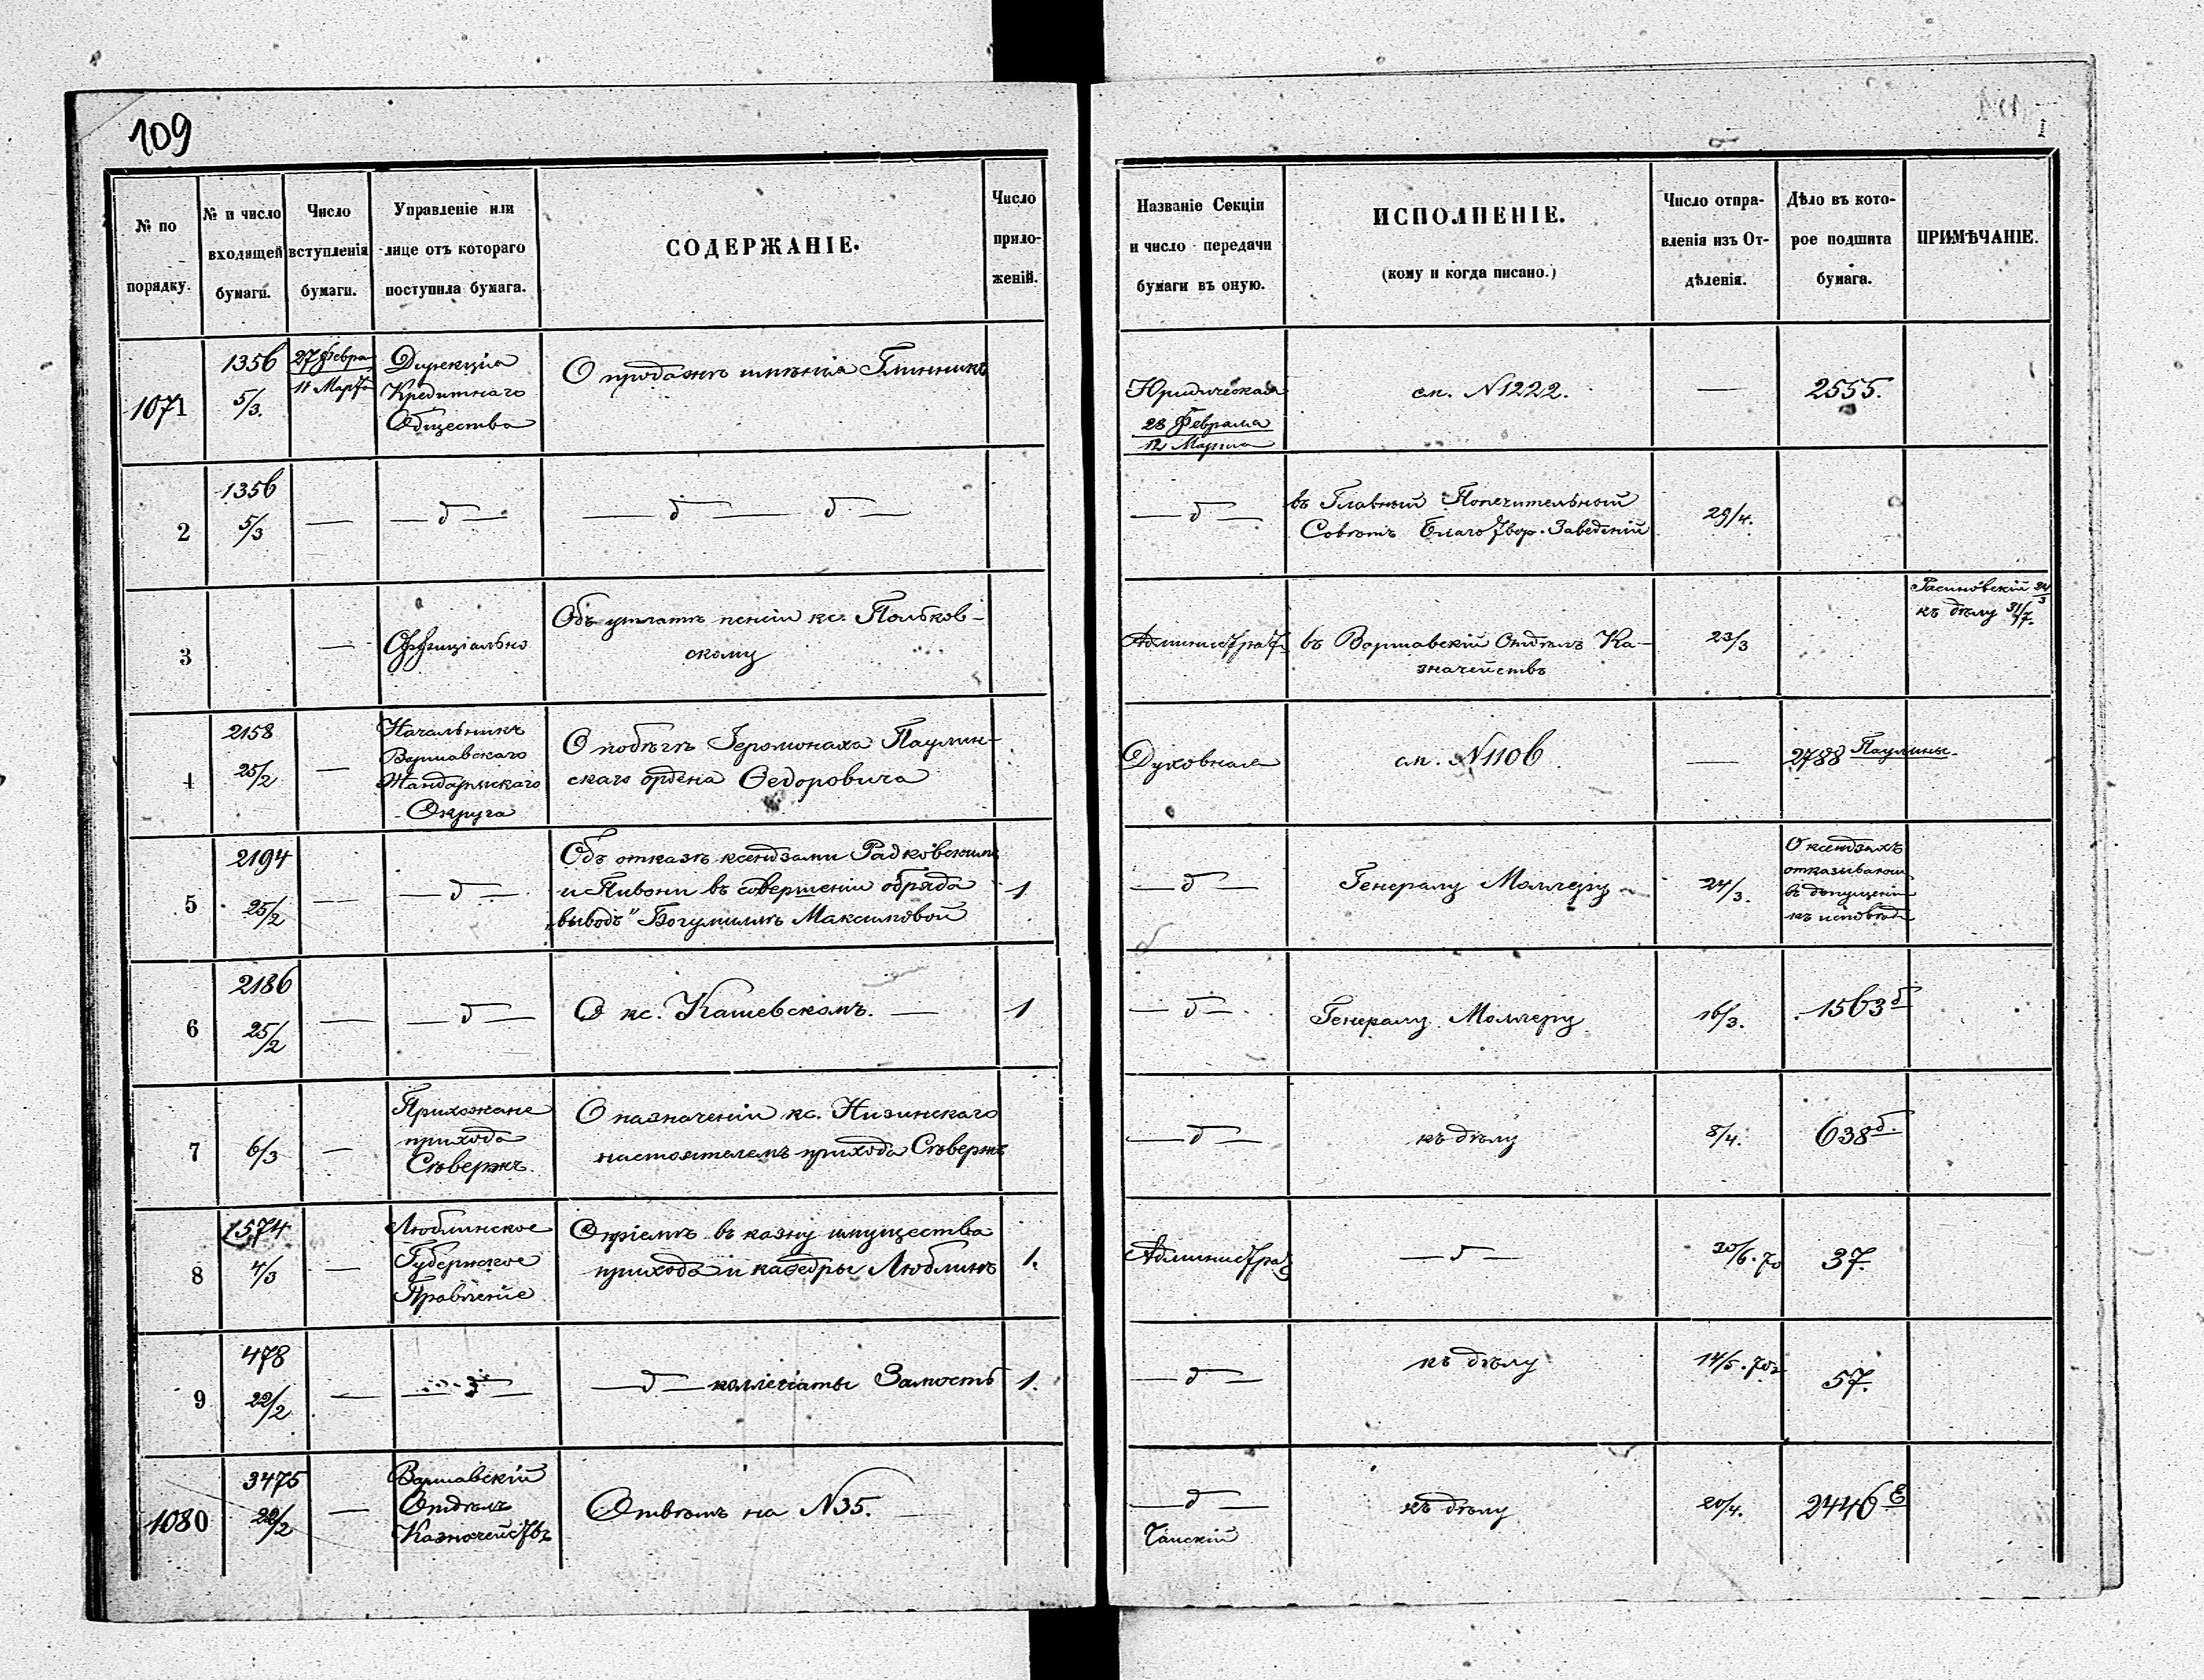 109
№ по порядку.
№ и число входящей бумаги.
Число вступленія бумаги.
Управленіе или лице отъ котораго поступила бумага.
СОДЕРЖАНІЕ.
Число приложеній.
Названіе Секціи и число передачи бумаги въ оную.
ИСПОЛНЕНІЕ.
(кому и когда писано.)
Число отправленія изъ Отдѣленія.
Дѣло въ которое подшита бумага.
ПРИМѢЧАНІЕ.
1071
1356
5/3.
27 Февра
11 Марта
Дирекція
Кредитнаго
Общества
О продажѣ имѣнія Глинникъ
Юридическая
28 Февраля
12 Марта
см. N1222.
—
2555.
2
1356
5/3
—
— д —
— д — д —
— д —
въ Главный Попечительный
Совѣтъ Благотвор. Заведеній
29/4.
3
—
Оффиціально
Объ уплатѣ пенсіи кс. Польков-
скому
Администрат.
въ Варшавскій Отдѣлъ Ка-
значействъ
23/3
24/3
къ дѣлу 31/7.
4
2158
25/2
—
Начальникъ
Варшавскаго
Жандармскаго
Округа
О побѣгѣ Іеромонаха Паулин-
скаго ордена Ѳедоровича
Духовная
см. N1106
—
2788 Паулины.
5
2194
25/2
—
— д —
Объ отказѣ ксендзами Радковскимъ
и Пивони въ совершеніи обряда
„выводъ" Богумилѣ Максимовой
1
— д —
Генералу Моллеру
24/3.
О ксендзахъ
отказывающ
въ допущеніи
къ исповѣди
6
2186
25/2
—
— д —
О кс. Кашевскомъ. —
1
— д —.
Генералу Моллеру
16/3.
1563 б
7
6/3
—
Прихожане
прихода
Сѣвержъ.
О назначеніи кс. Низинскаго
настоятелемъ прихода Сѣвержъ
— д —
къ дѣлу
8/4.
638 б.
8
1574
4/3
—
Люблинское
Губернское
Правленіе
О пріемѣ въ казну имущества
прихода и кафедры Люблинъ
1.
Администрат
— д —
30/6. 70
37.
9
478
22/2
—
— д —
— д — коллегіаты Замость
1.
— д —
къ дѣлу
14/5. 70
57.
1080
3475
22/2
—
Варшавскій
Отдѣлъ
Казначействъ
Отвѣтъ на N35.
— д —
Чайскій
къ дѣлу
20/4.
2446 Е